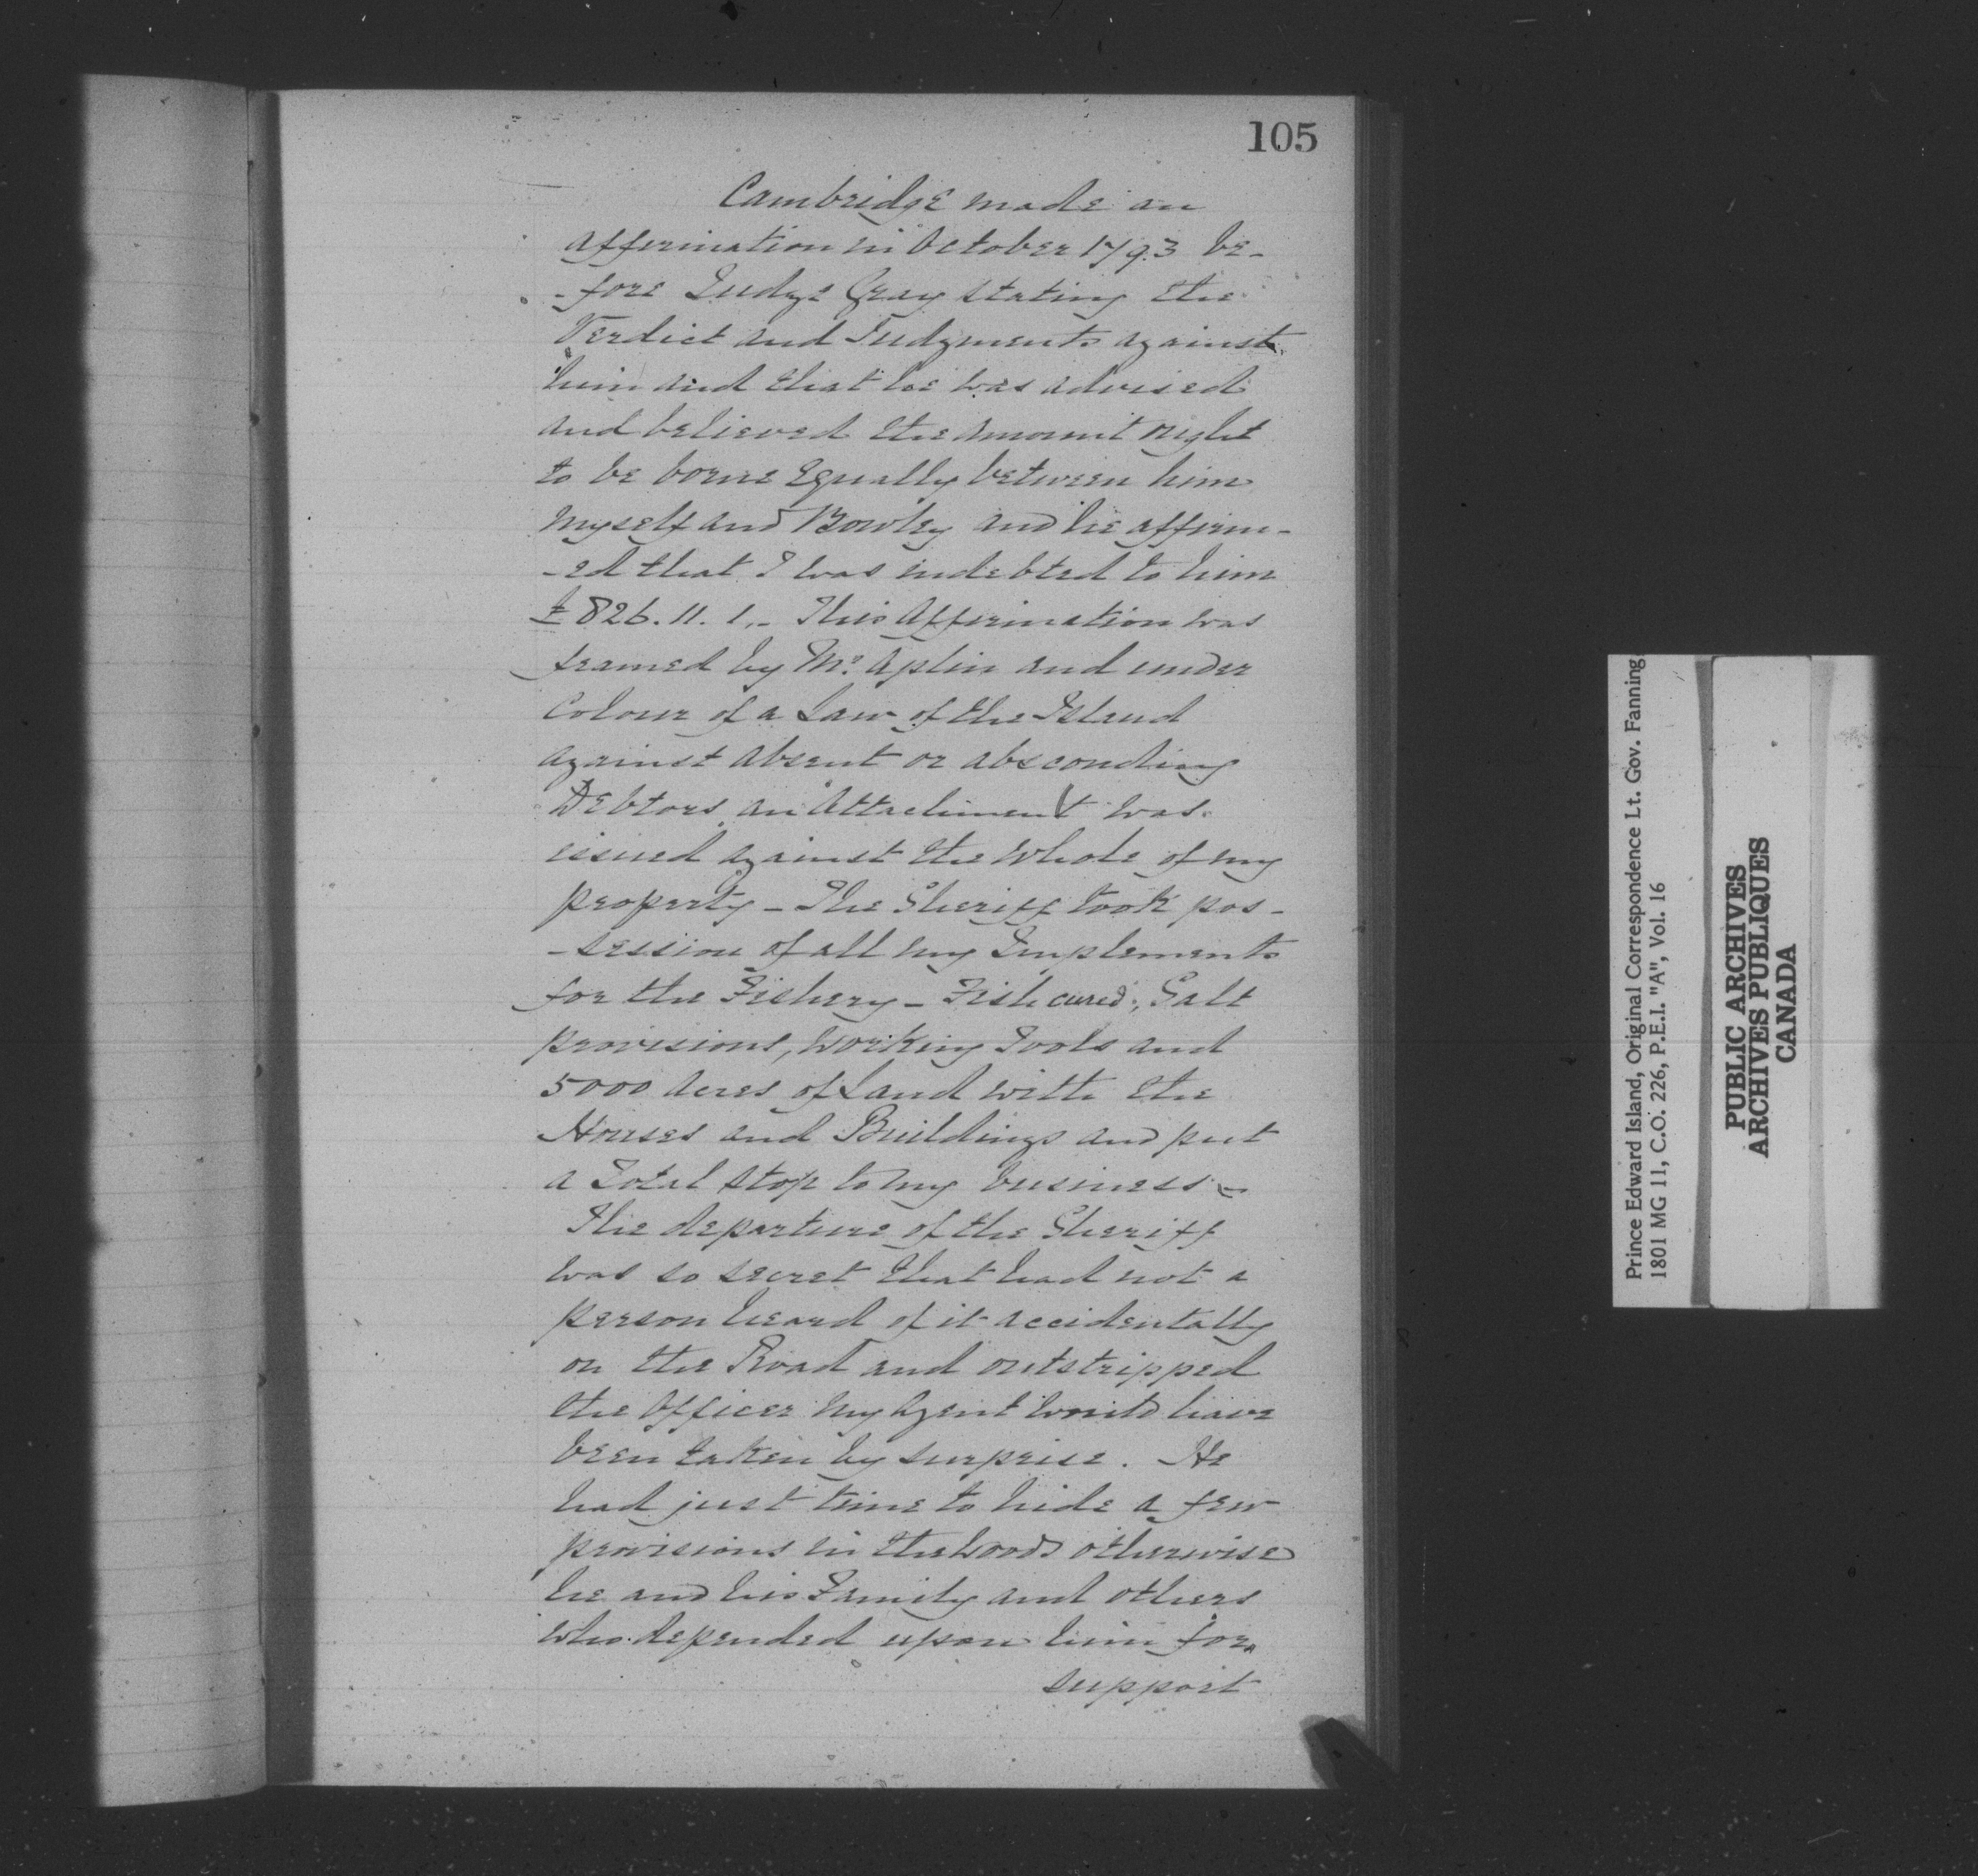 105
Cambridge made an
affirmation in October 1793 be-
-fore Judge Gray stating the
Verdict and Judgments against
him and that he was advised
and believed the amount right
to be borne equally between him
myself and Bowley and he affirm-
-ed that I was indebted to him
£826. 11. 1.- This Affirmation was
framed by Mr. Aplin and under
Colour of a Law of the Island
against absent or absconding
Debtors an Attachment was
issued against the whole of my
property - The Sheriff took pos-
-session of all my Implements
for the Fishery - Fish cured, Salt
provisions, working Tools and
5000 acres of Land with the
Houses and Buildings and put
a Total stop to my business -
The departure of the Sheriff
was so secret that had not a
person heard of it accidentally
on the Road and outstripped
the Officer my Agent would have
been taken by surprise. He
had just time to hide a few
provisions in the woods otherwise
he and his Family and others
who depended upon him for
support
Prince Edward Island, Original Correspondence Lt. Gov. Fanning
1801 MG 11, C.O. 226, P.E.I. "A", Vol. 16
PUBLIC ARCHIVES
ARCHIVES PUBLIQUES
CANADA